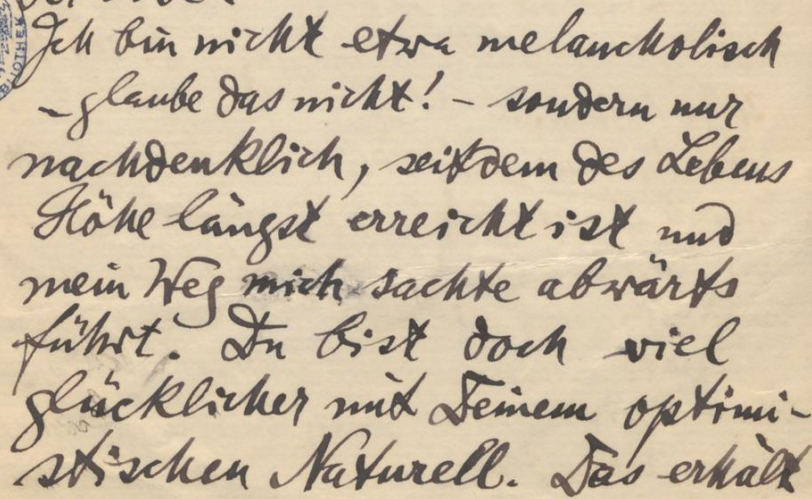 Ich bin nicht etwa melancholisch
– glaube das nicht! – sondern nur
nachdenklich, seitdem des Lebens
Höhe längst erreicht ist und
mein Weg mich sachte abwärts
führt. Du bist doch viel
glücklicher mit Deinem optimi-
stischen Naturell. Das erhält